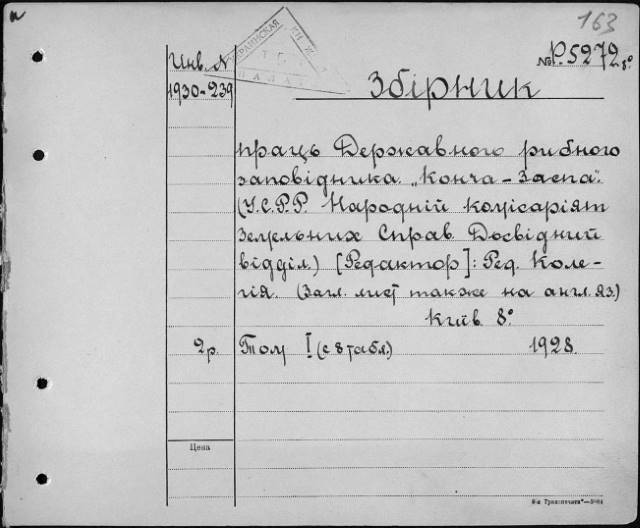 и
163
УКРАИНСКАЯ
Инв. №
№ Р.5272 8°
1930-239
Збірник
праць Державного рибного
заповідника „Конча-Заспа".
(У.С.Р.Р. Народній комісаріят
Земельних Справ. Досвідний
відділ.) [Редактор]: Ред. Коле-
гія. (Загл. лист также на англ. яз.)
Київ. 8°.
2р. Том I (с 8 табл.) 1928.
Цена